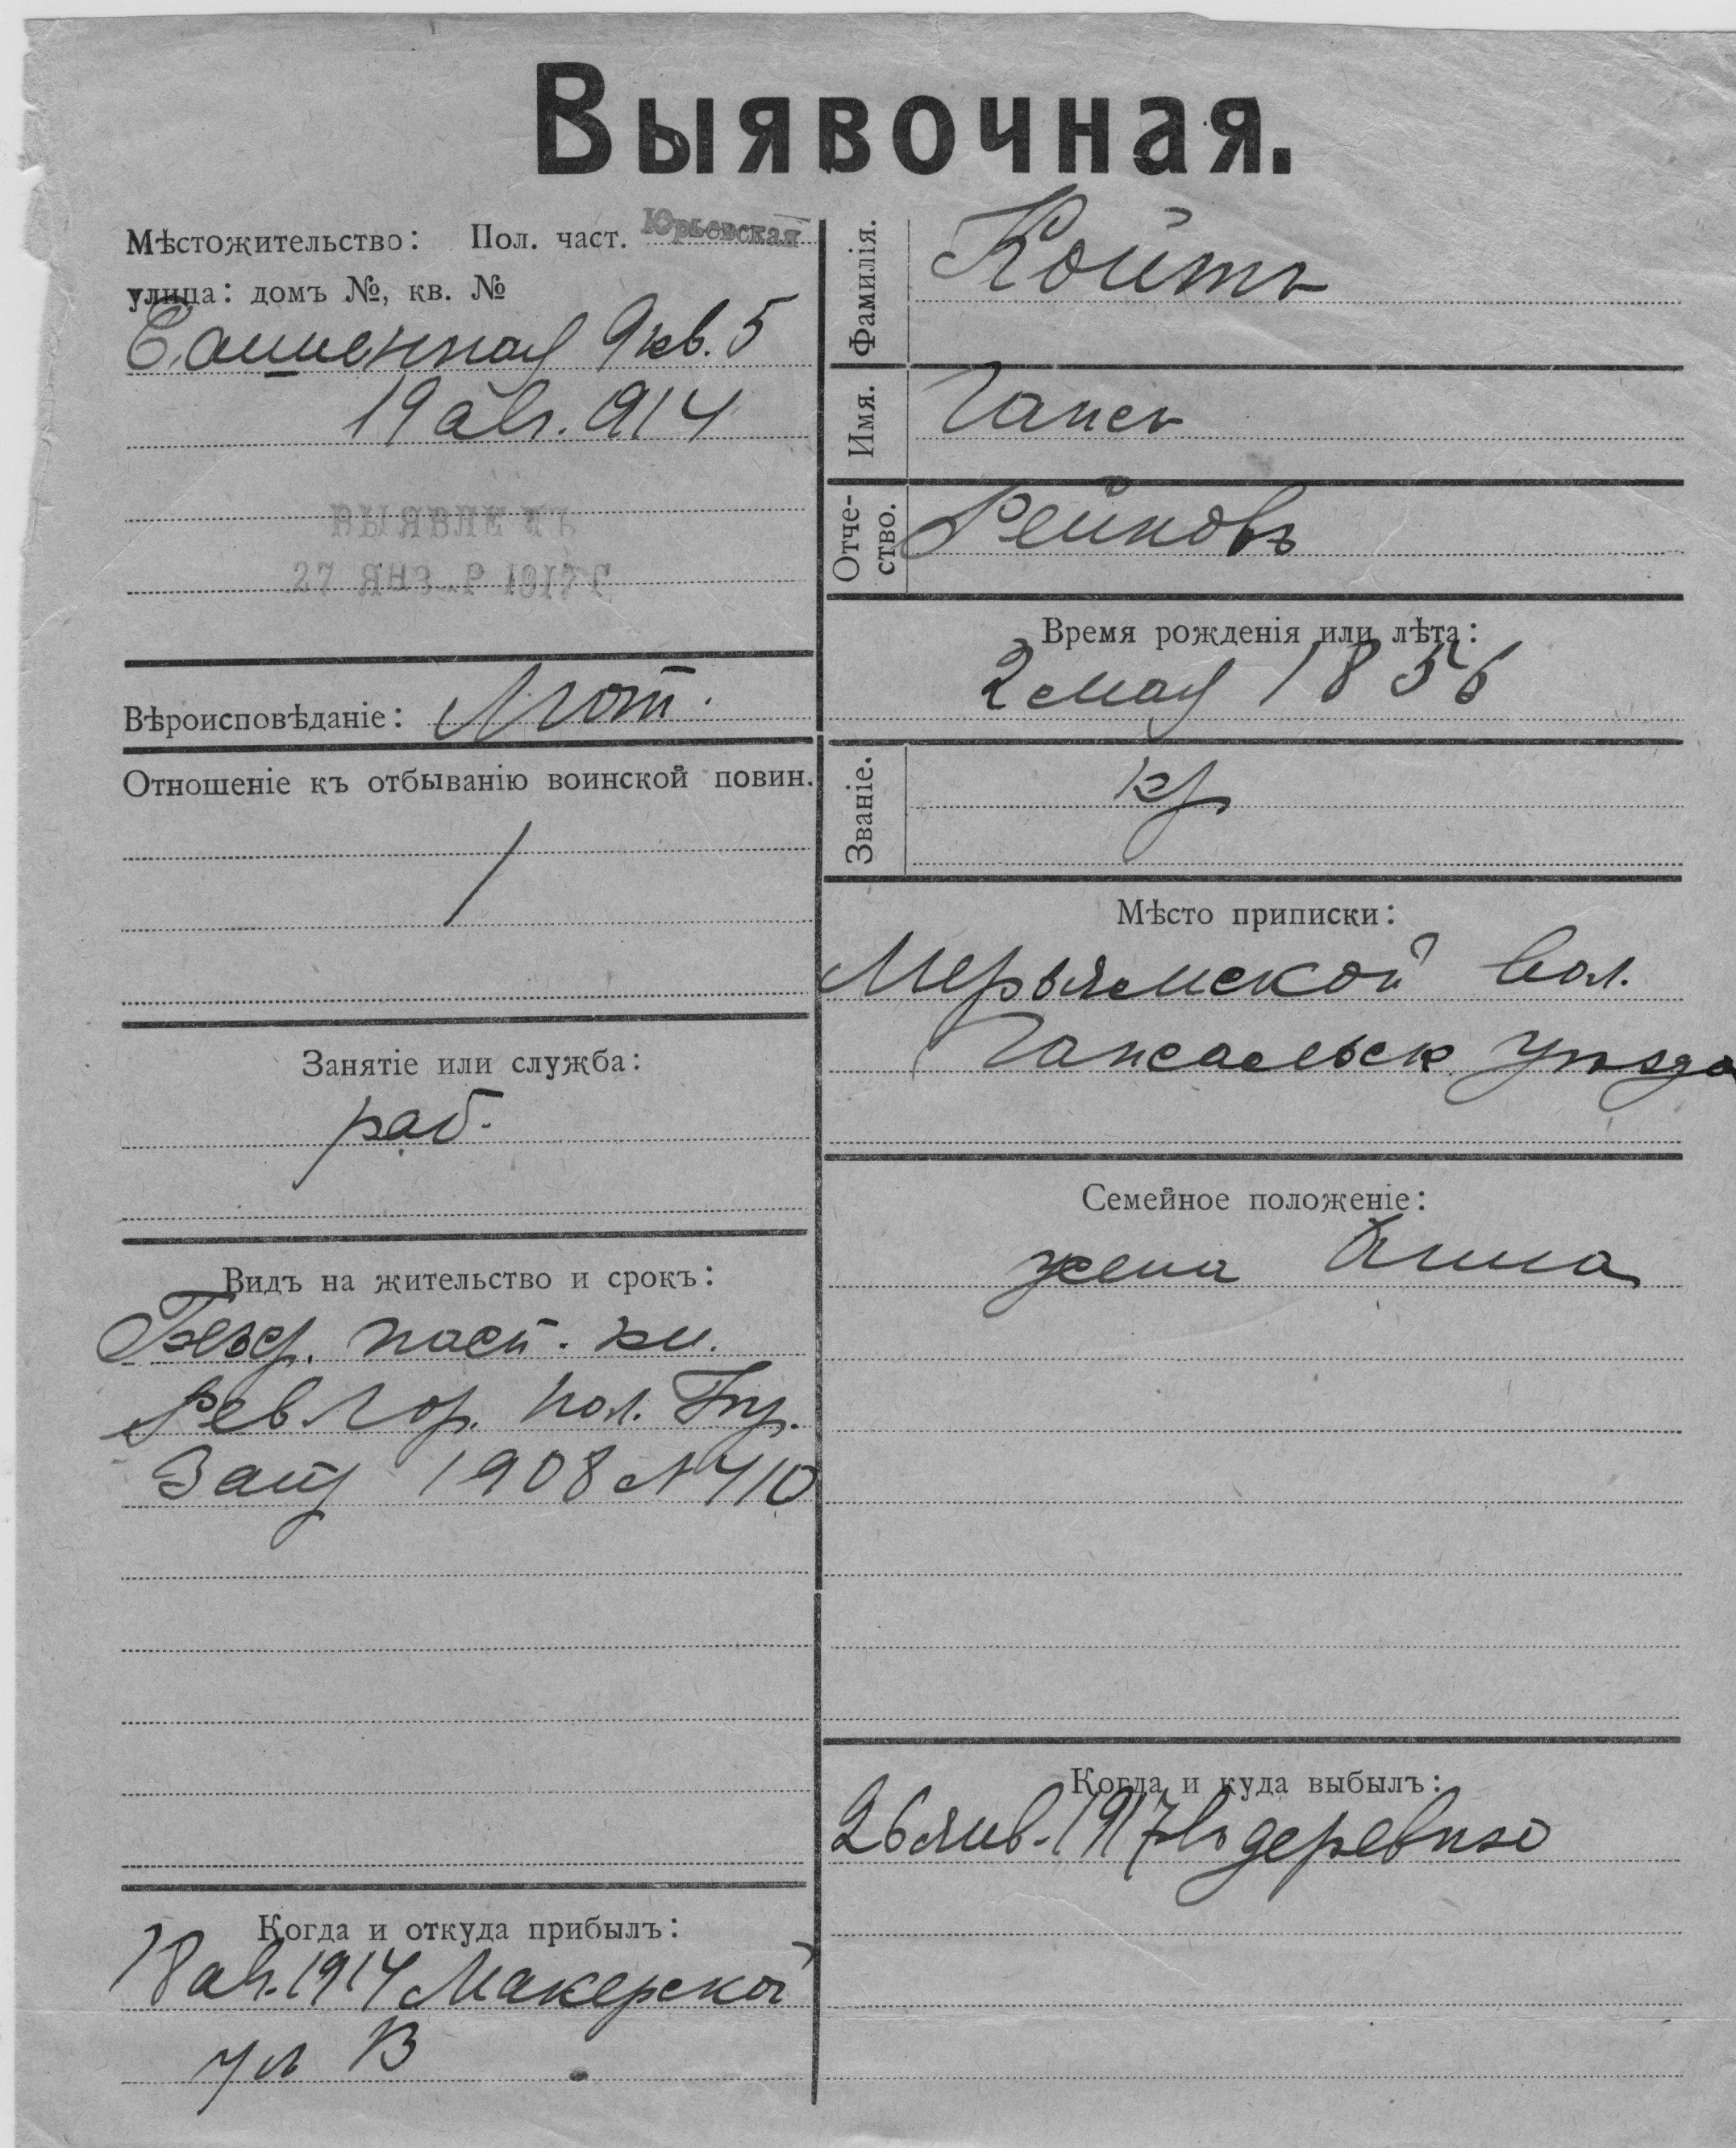 Выявочная.
Мѣстожительство: Пол. част. Юрьевская
улица: домъ №, кв. №
9 кв. 5
19 авг. 914
27 ЯНВ
Вѣроисповѣданіе: Лют.
Отношеніе къ отбыванію воинской повин.
/
Занятіе или служба:
раб.
Видъ на жительство и срокъ:
Безср. пасп. кн.
Рев Гор. Пол. Упр.
1908 № 410
Когда и откуда прибылъ:
18 авг. 1914 Макерской
ул 13
Фамилія. Койтъ
Имя. Гансъ
Отче-
ство. Рейновъ
Время рожденія или лѣта:
2 мая 1856
Званіе. кр
Мѣсто приписки:
Мерьямской вол.
Гапсальск уѣзда
Семейное положеніе:
жена Анна
Когда и куда выбылъ:
26 янв. 1917 въ деревню